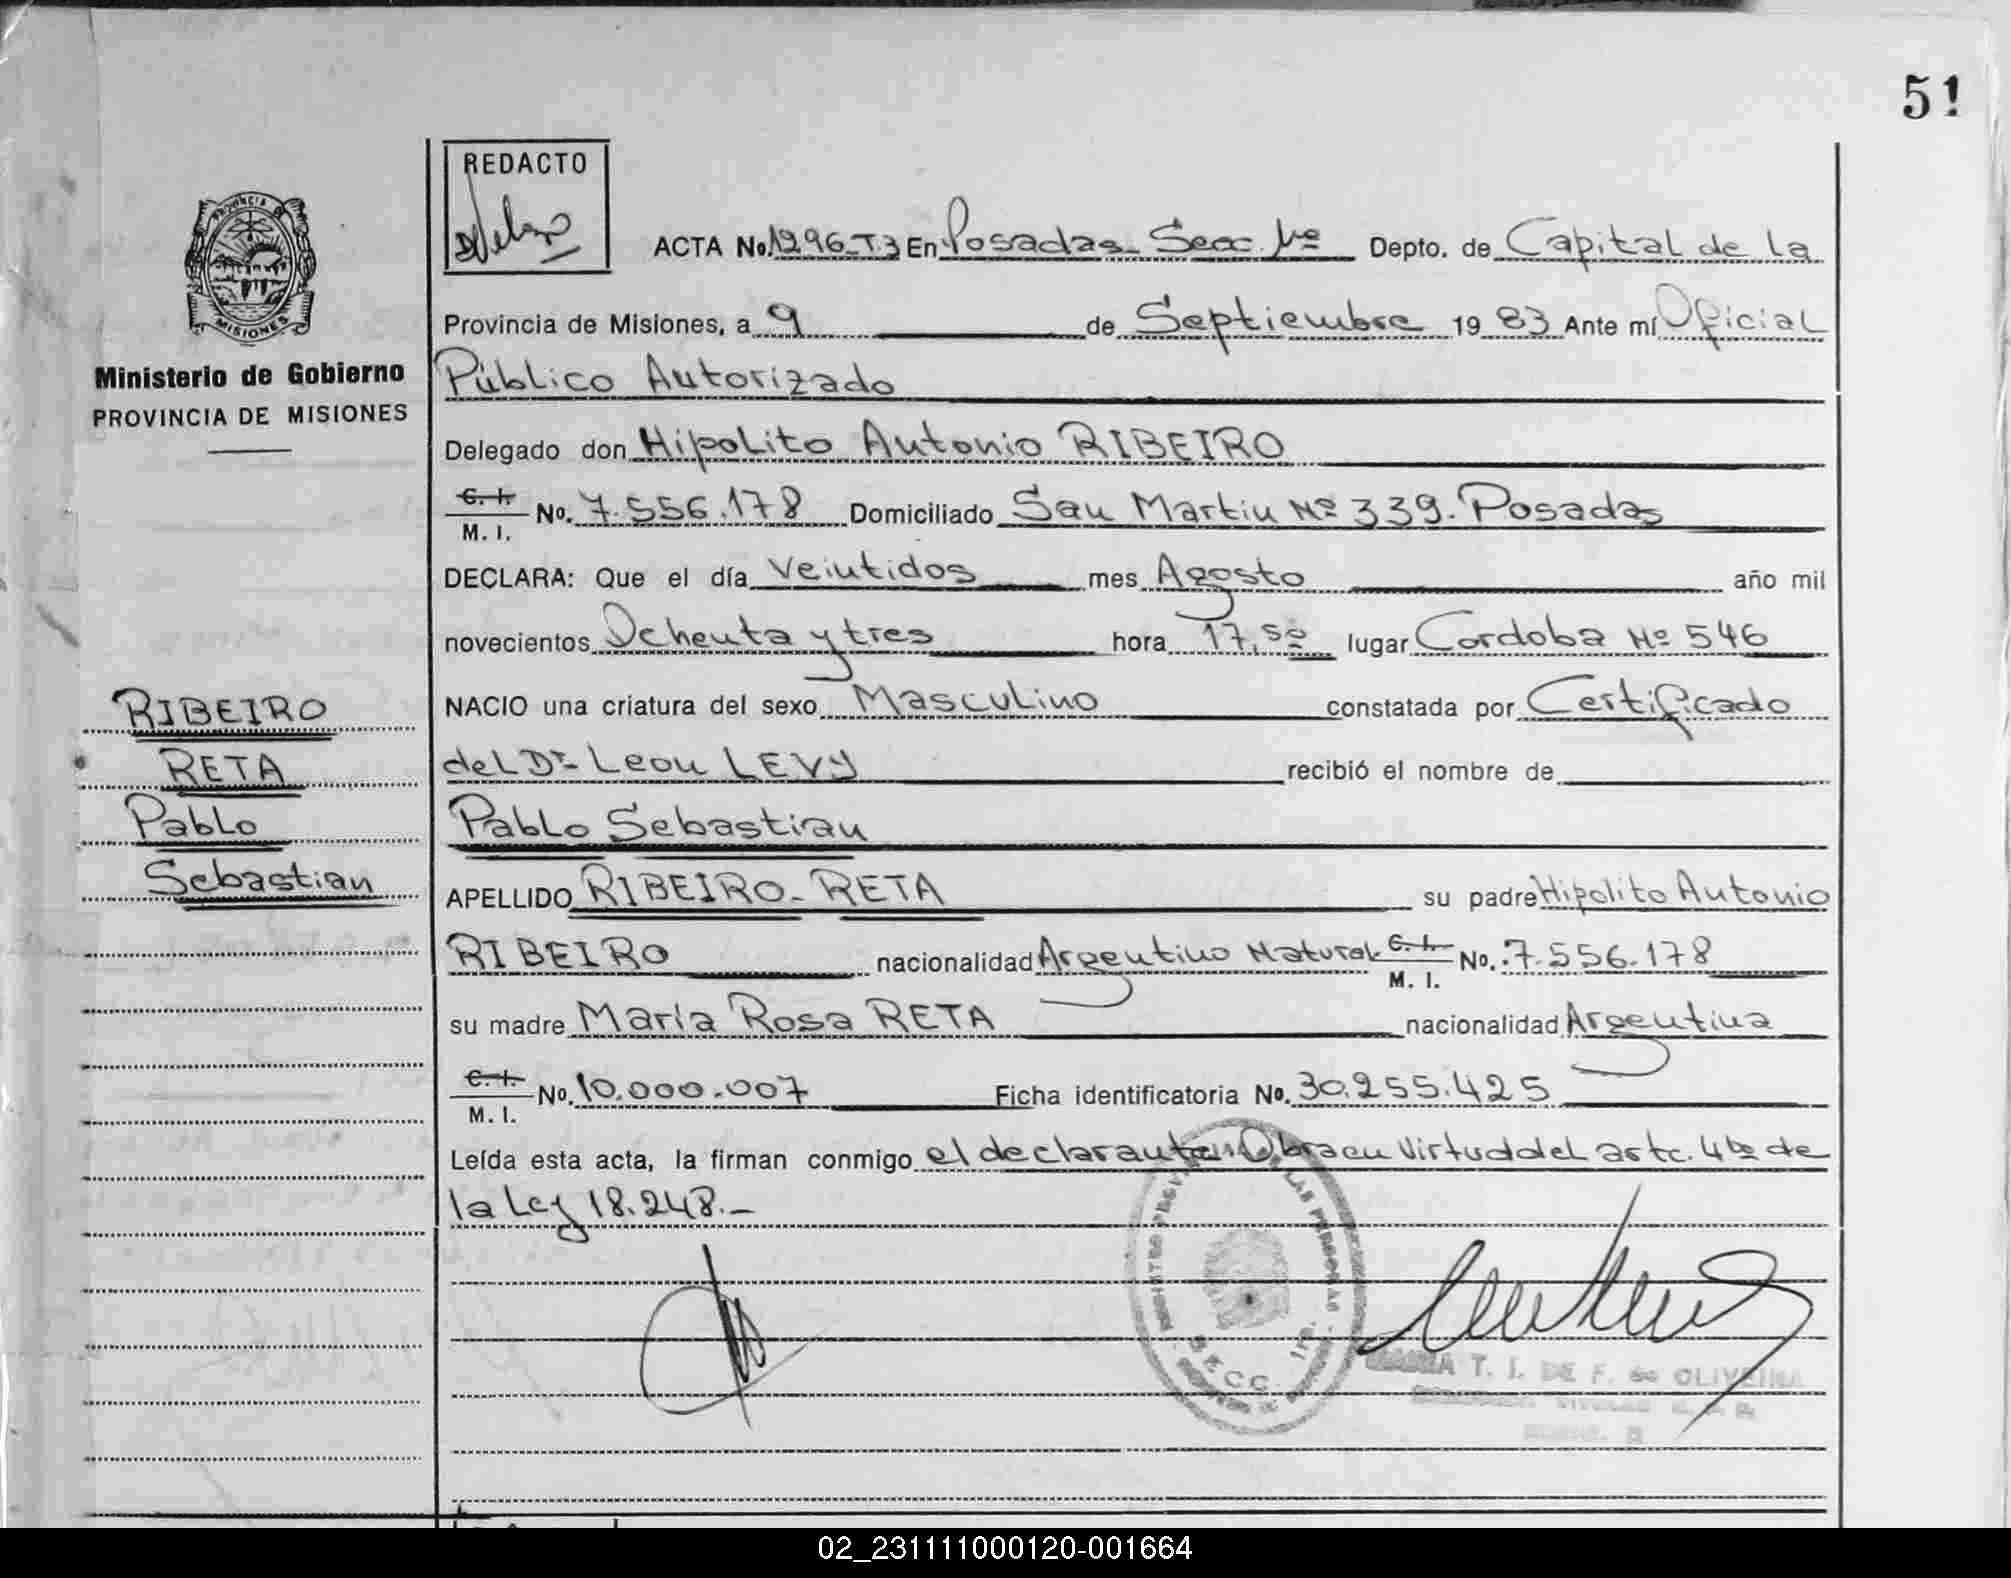 51
REDACTO
PROVINCIA DE
MISIONES
ACTA No. 1296-T.3 En Posadas-Secc. 1ra Depto. de Capital de la
Provincia de Misiones, a 9 de Septiembre 19 83 Ante mí Oficial
Público Autorizado
Ministerio de Gobierno
PROVINCIA DE MISIONES
Delegado don Hipolito Antonio RIBEIRO
C. I. M. I. No. 7.556.178 Domiciliado San Martin Nº 339. Posadas
DECLARA: Que el día Veintidos mes Agosto año mil
novecientos Ochenta y tres hora 17,50 lugar Cordoba Nº 546
NACIO una criatura del sexo Masculino constatada por Certificado
del Dr Leon LEVY recibió el nombre de
Pablo Sebastian
RIBEIRO
RETA
Pablo
Sebastian
APELLIDO RIBEIRO-RETA su padre Hipolito Antonio
RIBEIRO nacionalidad Argentino Natural C. I. M. I. No. 7.556.178
su madre María Rosa RETA nacionalidad Argentina
C. I. M. I. No. 10.000.007 Ficha identificatoria No. 30.255.425
Leída esta acta, la firman conmigo el declarante. Obra en Virtud del artc. 4to de
la Ley 18.248.-
T. I. DE F. de OLIVEIRA
02_231111000120-001664